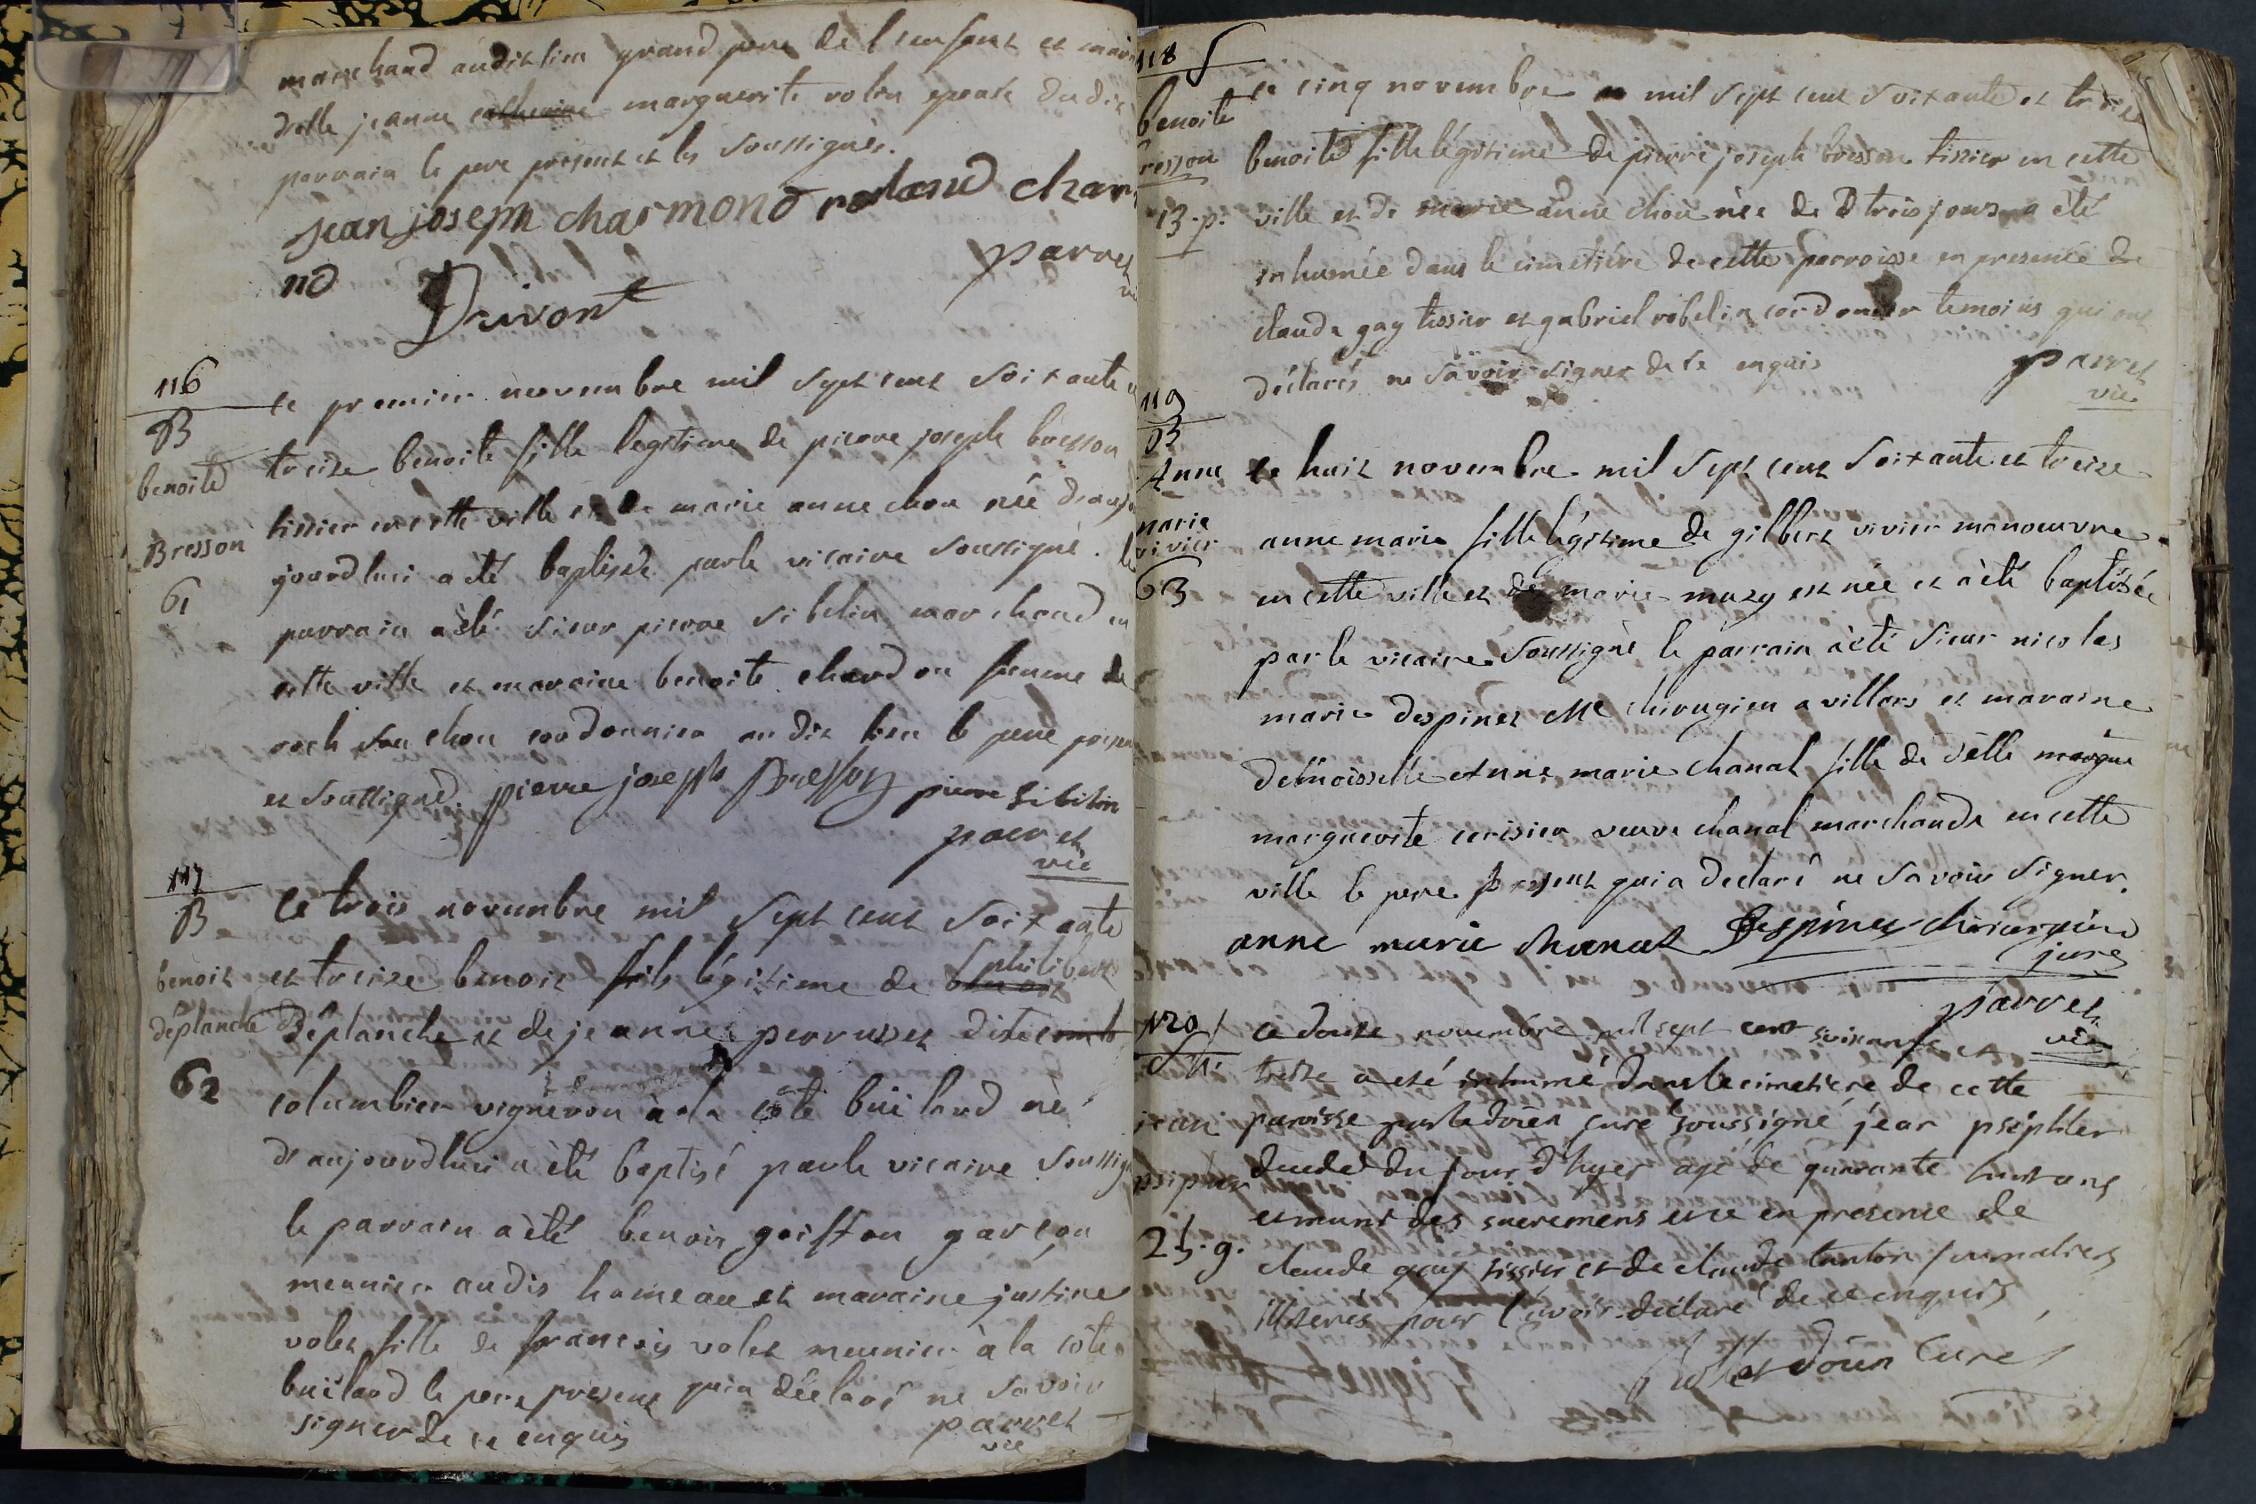 marchand audit lieu grand pere de l'enfant et
delle jeanne catherine marguerite rolin epouse dudit
parrain le pere present et les soussignés.
jean joseph charmond roland char
nd
parret
Drivont
116
B
benoite
Bresson
61
ce premier novembre mil sept cent soixante
treize benoite fille legitime de pierre joseph bresson
tissier en cette ville et de marie anne chou née d'au
jourdhui a été baptisée par le vicaire soussigné. le
parrain a été sieur pierre sibelin marchand en
cette ville et maraine benoite chardon femme de
roch souchon cordonnier audit lieu le pere
et soussigné. pierre joseph Bresson pierre sibilin
parret
vic
117
B
benoit
déplanche
62
Ce trois novembre mil sept cent soixante
et treize benoit fils légitime de benoit philibert
déplanche et de jeanne perrusset dite
columbier vigneron à la côte builard né
d'aujourdhui a été baptisé par le vicaire soussig
le parrain a été benoit goiffon garçon
meunier audit hameau et maraine justine
volet fille de francois volet meunier à la côte
builard le pere present qui a déclaré ne savoir
signer de ce enquis
parret
vic
118 S
benoite
bresson
13.p.
ce cinq novembre mil sept cent soixante et treize
benoite fille légitime de pierre joseph bresson tissier en cette
ville et de marie anne chou née de trois jours a été
inhumée dans le cimetière de cette parroisse en presence de
claude gay tissier et gabriel robelin cordonier temoins qui ont
déclarés ne savoir signer de ce enquis
parret
vic
119
B
Anne
marie
vivier
63
ce huit novembre mil sept cent soixante et treize
anne marie fille légitime de gilbert vivier manoeuvre
en cette ville et de marie muzy est née et a été baptisée
par le vicaire soussigné le parrain a été sieur nicolas
marie despinet Me chirugien a villars et maraine
demoisselle Anne marie chanal fille de delle
marguerite cerisier veuve chanal marchande en cette
ville le pere present qui a declaré ne savoir signer.
anne marie chanal Despiney chirurgien
juré
parret
vic
120
S
jean
psipher
25.g.
ce douze novembre mil sept cent soixante et
treize a eté inhumé dans le cimetiere de cette
paroisse par le doïen curé soussigné jean psiphter
decedé du jour d'hyer agé de quarante huit ans
et muni des sacremens et ce en presence de
claude gay tissier et de claude tantor journaliers
illiterés pour l'avoir déclaré de ce enquis
doïen curé